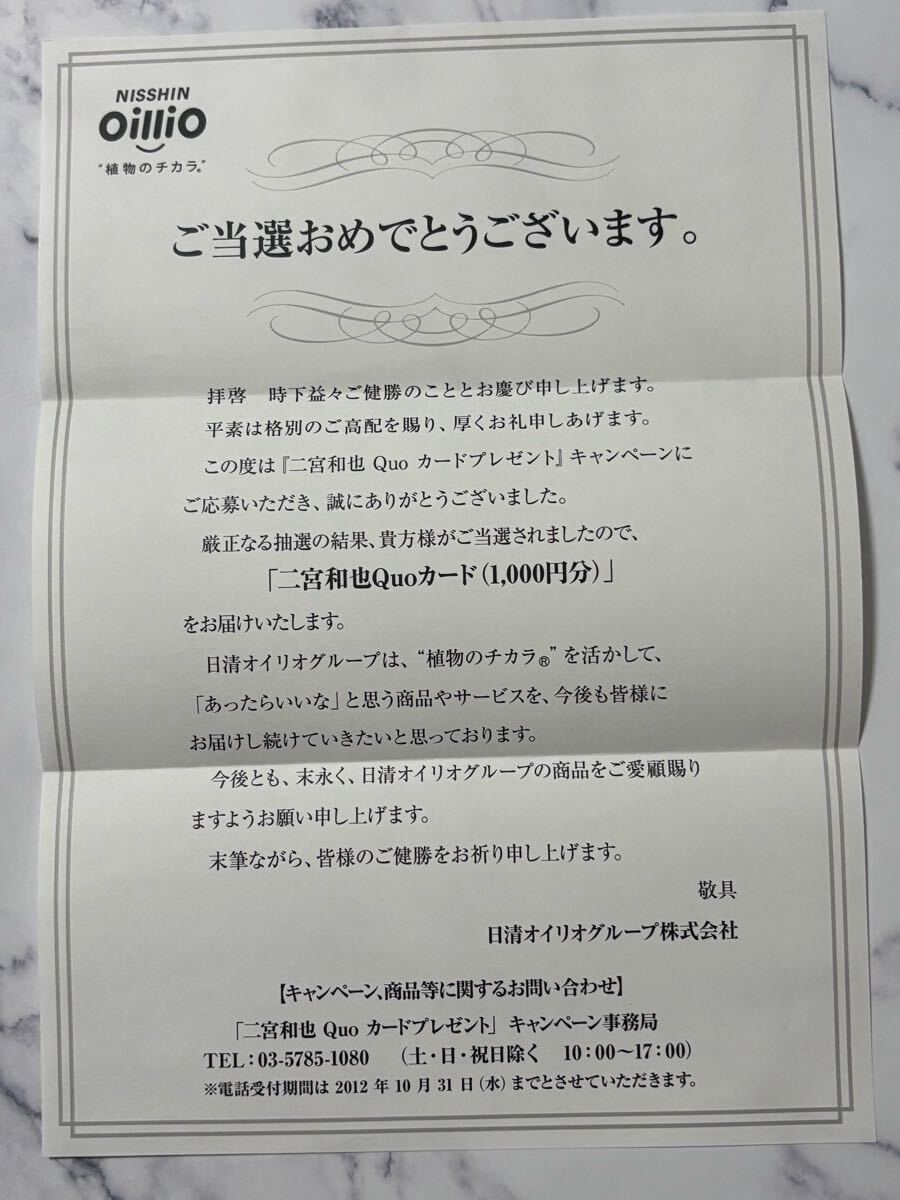 NISSHIN
OilliO
“植物のチカラ®”
ご当選おめでとうございます。
拝啓　時下益々ご健勝のこととお慶び申し上げます。
平素は格別のご高配を賜り、厚くお礼申しあげます。
この度は『二宮和也 Quo カードプレゼント』キャンペーンに
ご応募いただき、誠にありがとうございました。
厳正なる抽選の結果、貴方様がご当選されましたので、
「二宮和也Quoカード(1,000円分)」
をお届けいたします。
日清オイリオグループは、“植物のチカラ®”を活かして、
「あったらいいな」と思う商品やサービスを、今後も皆様に
お届けし続けていきたいと思っております。
今後とも、末永く、日清オイリオグループの商品をご愛顧賜り
ますようお願い申し上げます。
末筆ながら、皆様のご健勝をお祈り申し上げます。
敬具
日清オイリオグループ株式会社
【キャンペーン、商品等に関するお問い合わせ】
「二宮和也 Quo カードプレゼント」キャンペーン事務局
TEL：03-5785-1080　（土・日・祝日除く　10：00〜17：00）
※電話受付期間は 2012 年 10 月 31 日(水)までとさせていただきます。